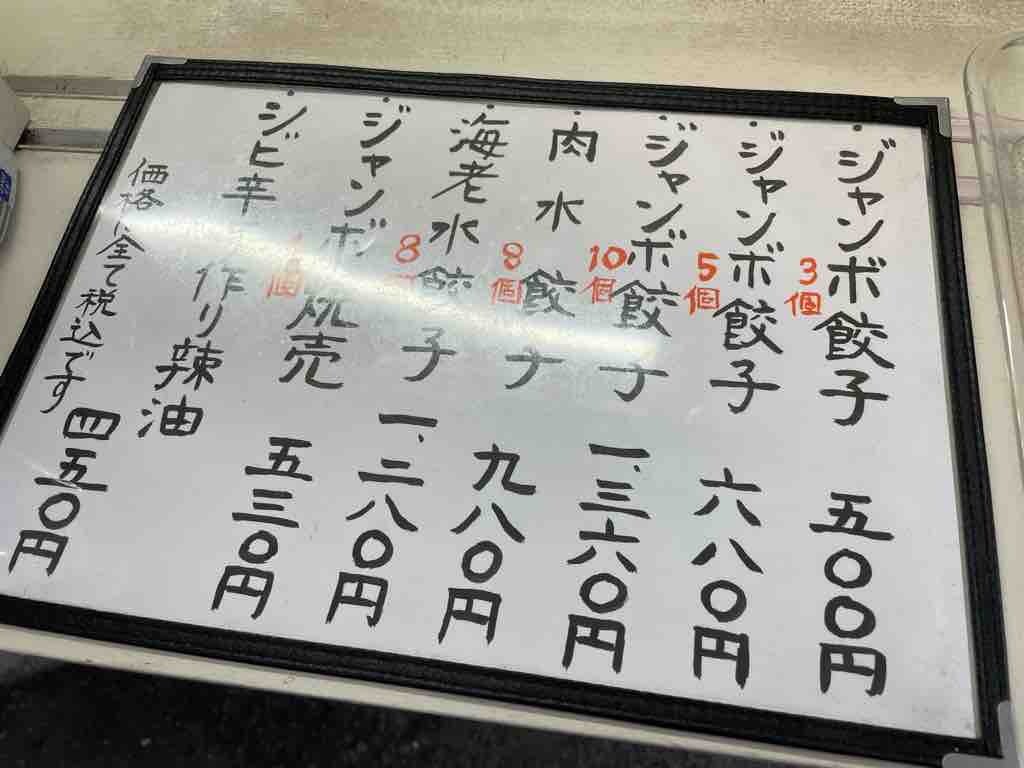 ・ジャンボ餃子 3個 五〇〇円
・ジャンボ餃子 5個 六八〇円
・ジャンボ餃子 10個 一、三六〇円
・肉水餃子 8個 九八〇円
・海老水餃子 8個 一、二八〇円
・ジャンボ焼売 個 五三〇円
・シビ辛 作り辣油 四五〇円
価格は全て税込です